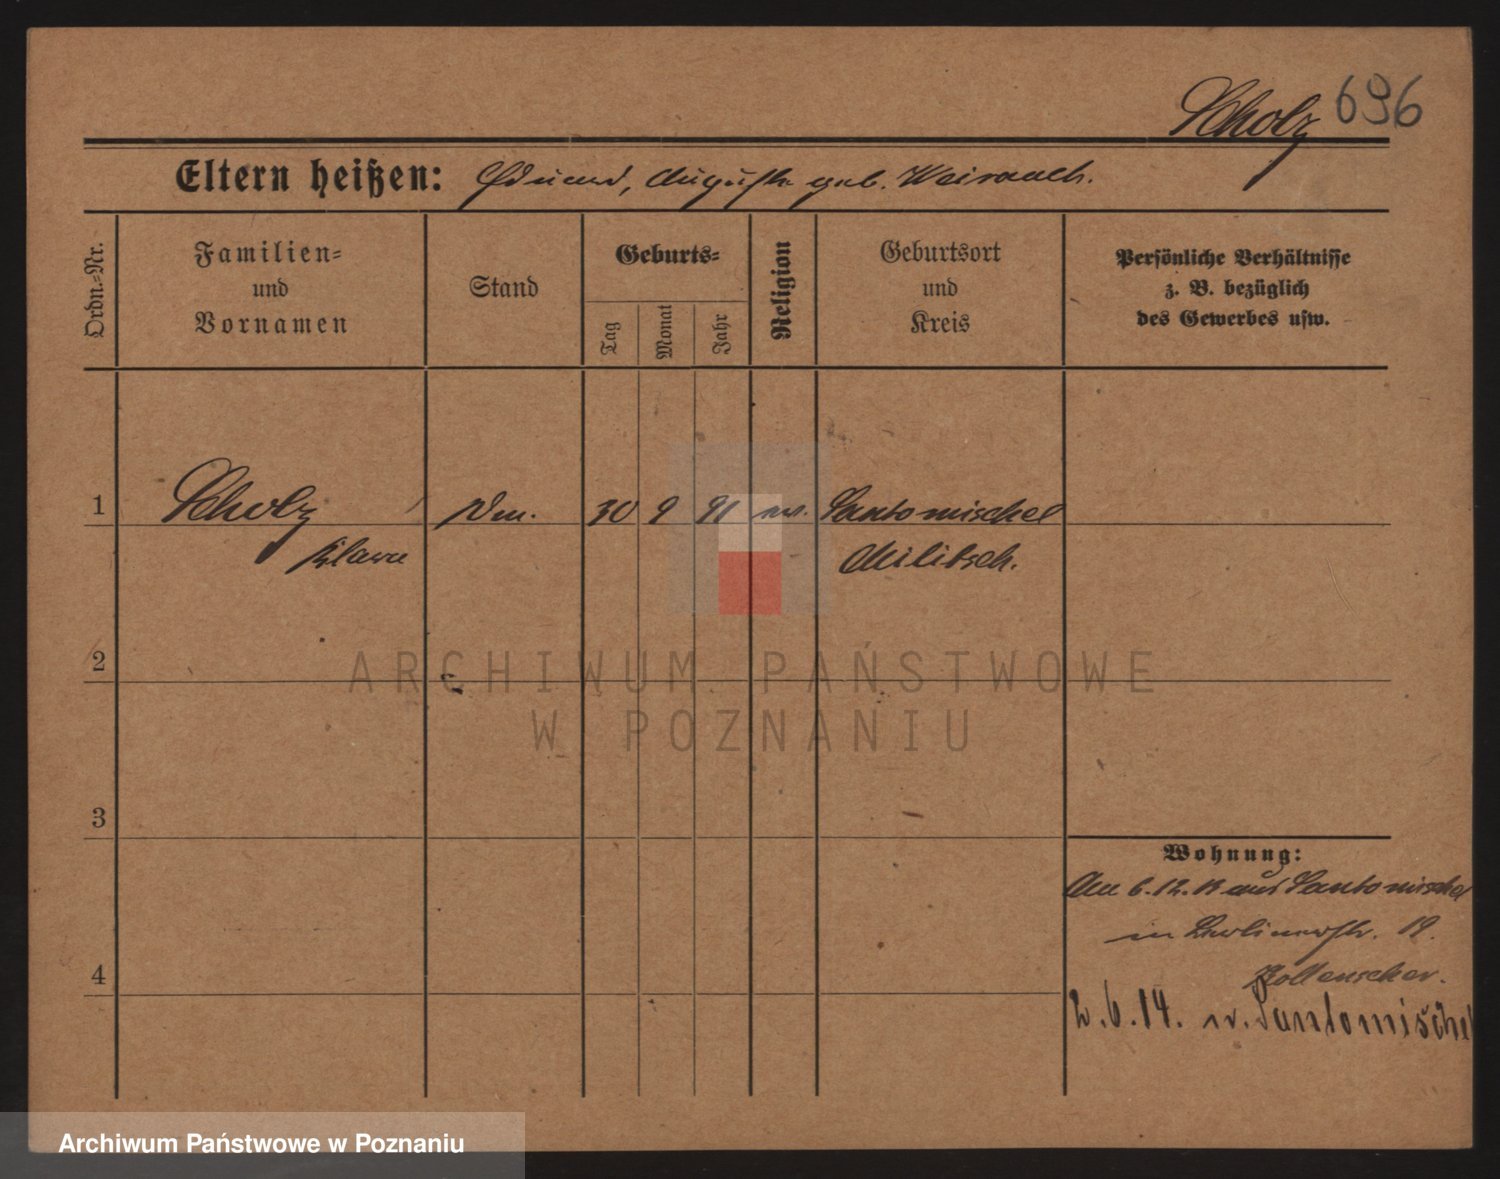 Scholz 696
Eltern heißen: Eduard, Auguste geb. Weirauch.
Ordn.-Nr.
Familien-
und
Vornamen
Stand
Geburts-
Tag
Monat
Jahr
Religion
Geburtsort
und
Kreis
Persönliche Verhältnisse
z. B. bezüglich
des Gewerbes usw.
1 Scholz 30 9 91 ev. Santomischel
Klara Militsch.
2
ARCHIWUM PAŃSTWOWE
W POZNANIU
3
Wohnung:
Am 6.12.13 aus Santomischel
in Berlinerstr. 19.
4
2.6.14. n. Santomischel
Archiwum Państwowe w Poznaniu